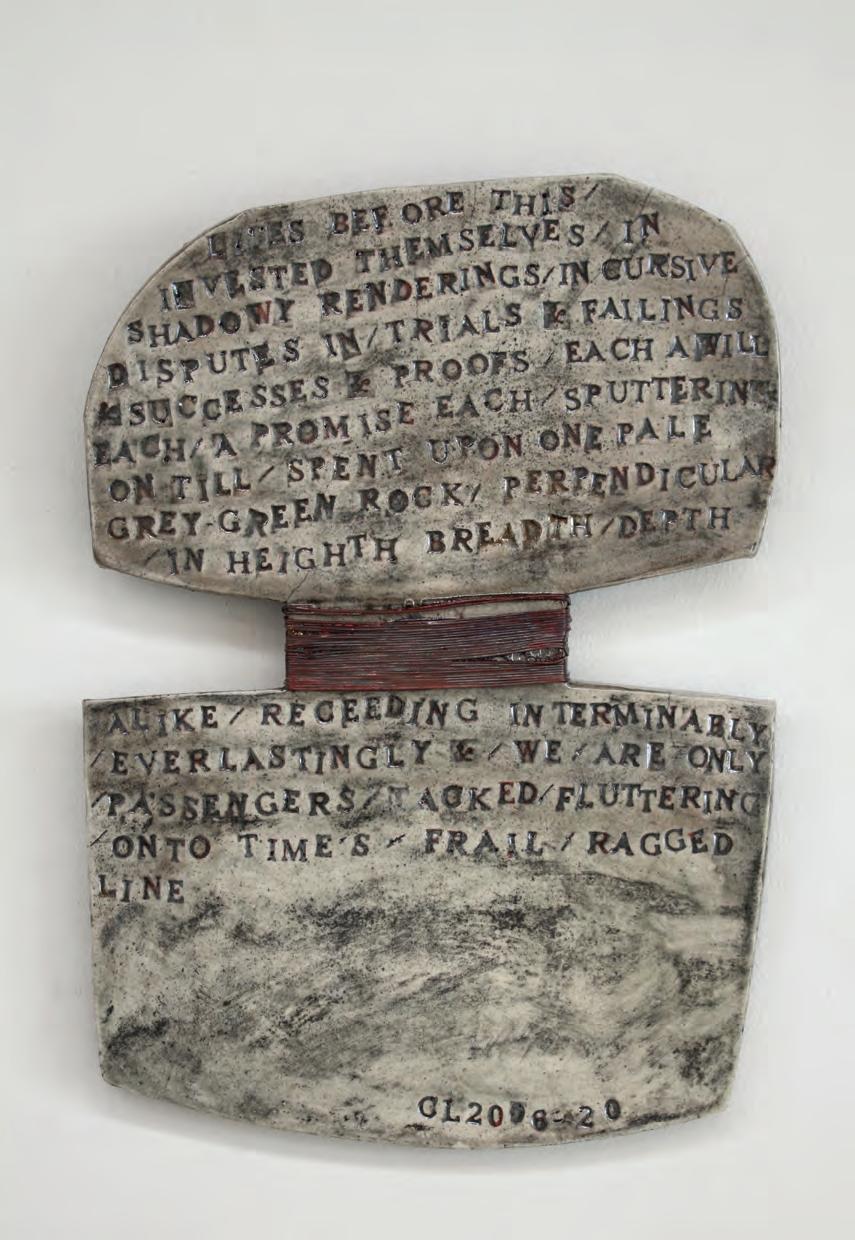 LIVES BEFORE THIS/
INVESTED THEMSELVES/IN
SHADOWY RENDERINGS/IN CURSIVE
DISPUTES IN/TRIALS & FAILINGS
& SUCCESSES & PROOFS/EACH A WILL
EACH/A PROMISE EACH/SPUTTERING
ON TILL/SPENT UPON ONE PALE
GREY-GREEN ROCK/ PERPENDICULAR
/IN HEIGHTH BREADTH/DEPTH
ALIKE/RECEEDING INTERMINABLY
/EVERLASTINGLY &/WE/ARE ONLY
/PASSENGERS/TACKED/FLUTTERING
/ONTO TIME'S/FRAIL/RAGGED
LINE
CL2006-20